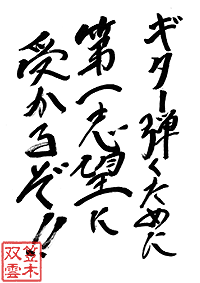 ギター弾くために
第一志望に
受かるぞ!!
笠木
双雲